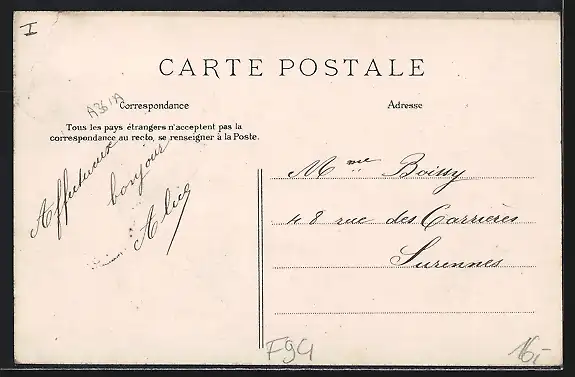 I
CARTE POSTALE
A361A
Correspondance
Adresse
Tous les pays étrangers n'acceptent pas la
correspondance au recto, se renseigner à la Poste.
Affectueux
bonjour
Alice
Mme Boissy
48 rue des Carrières
Suresnes
F94
16,-